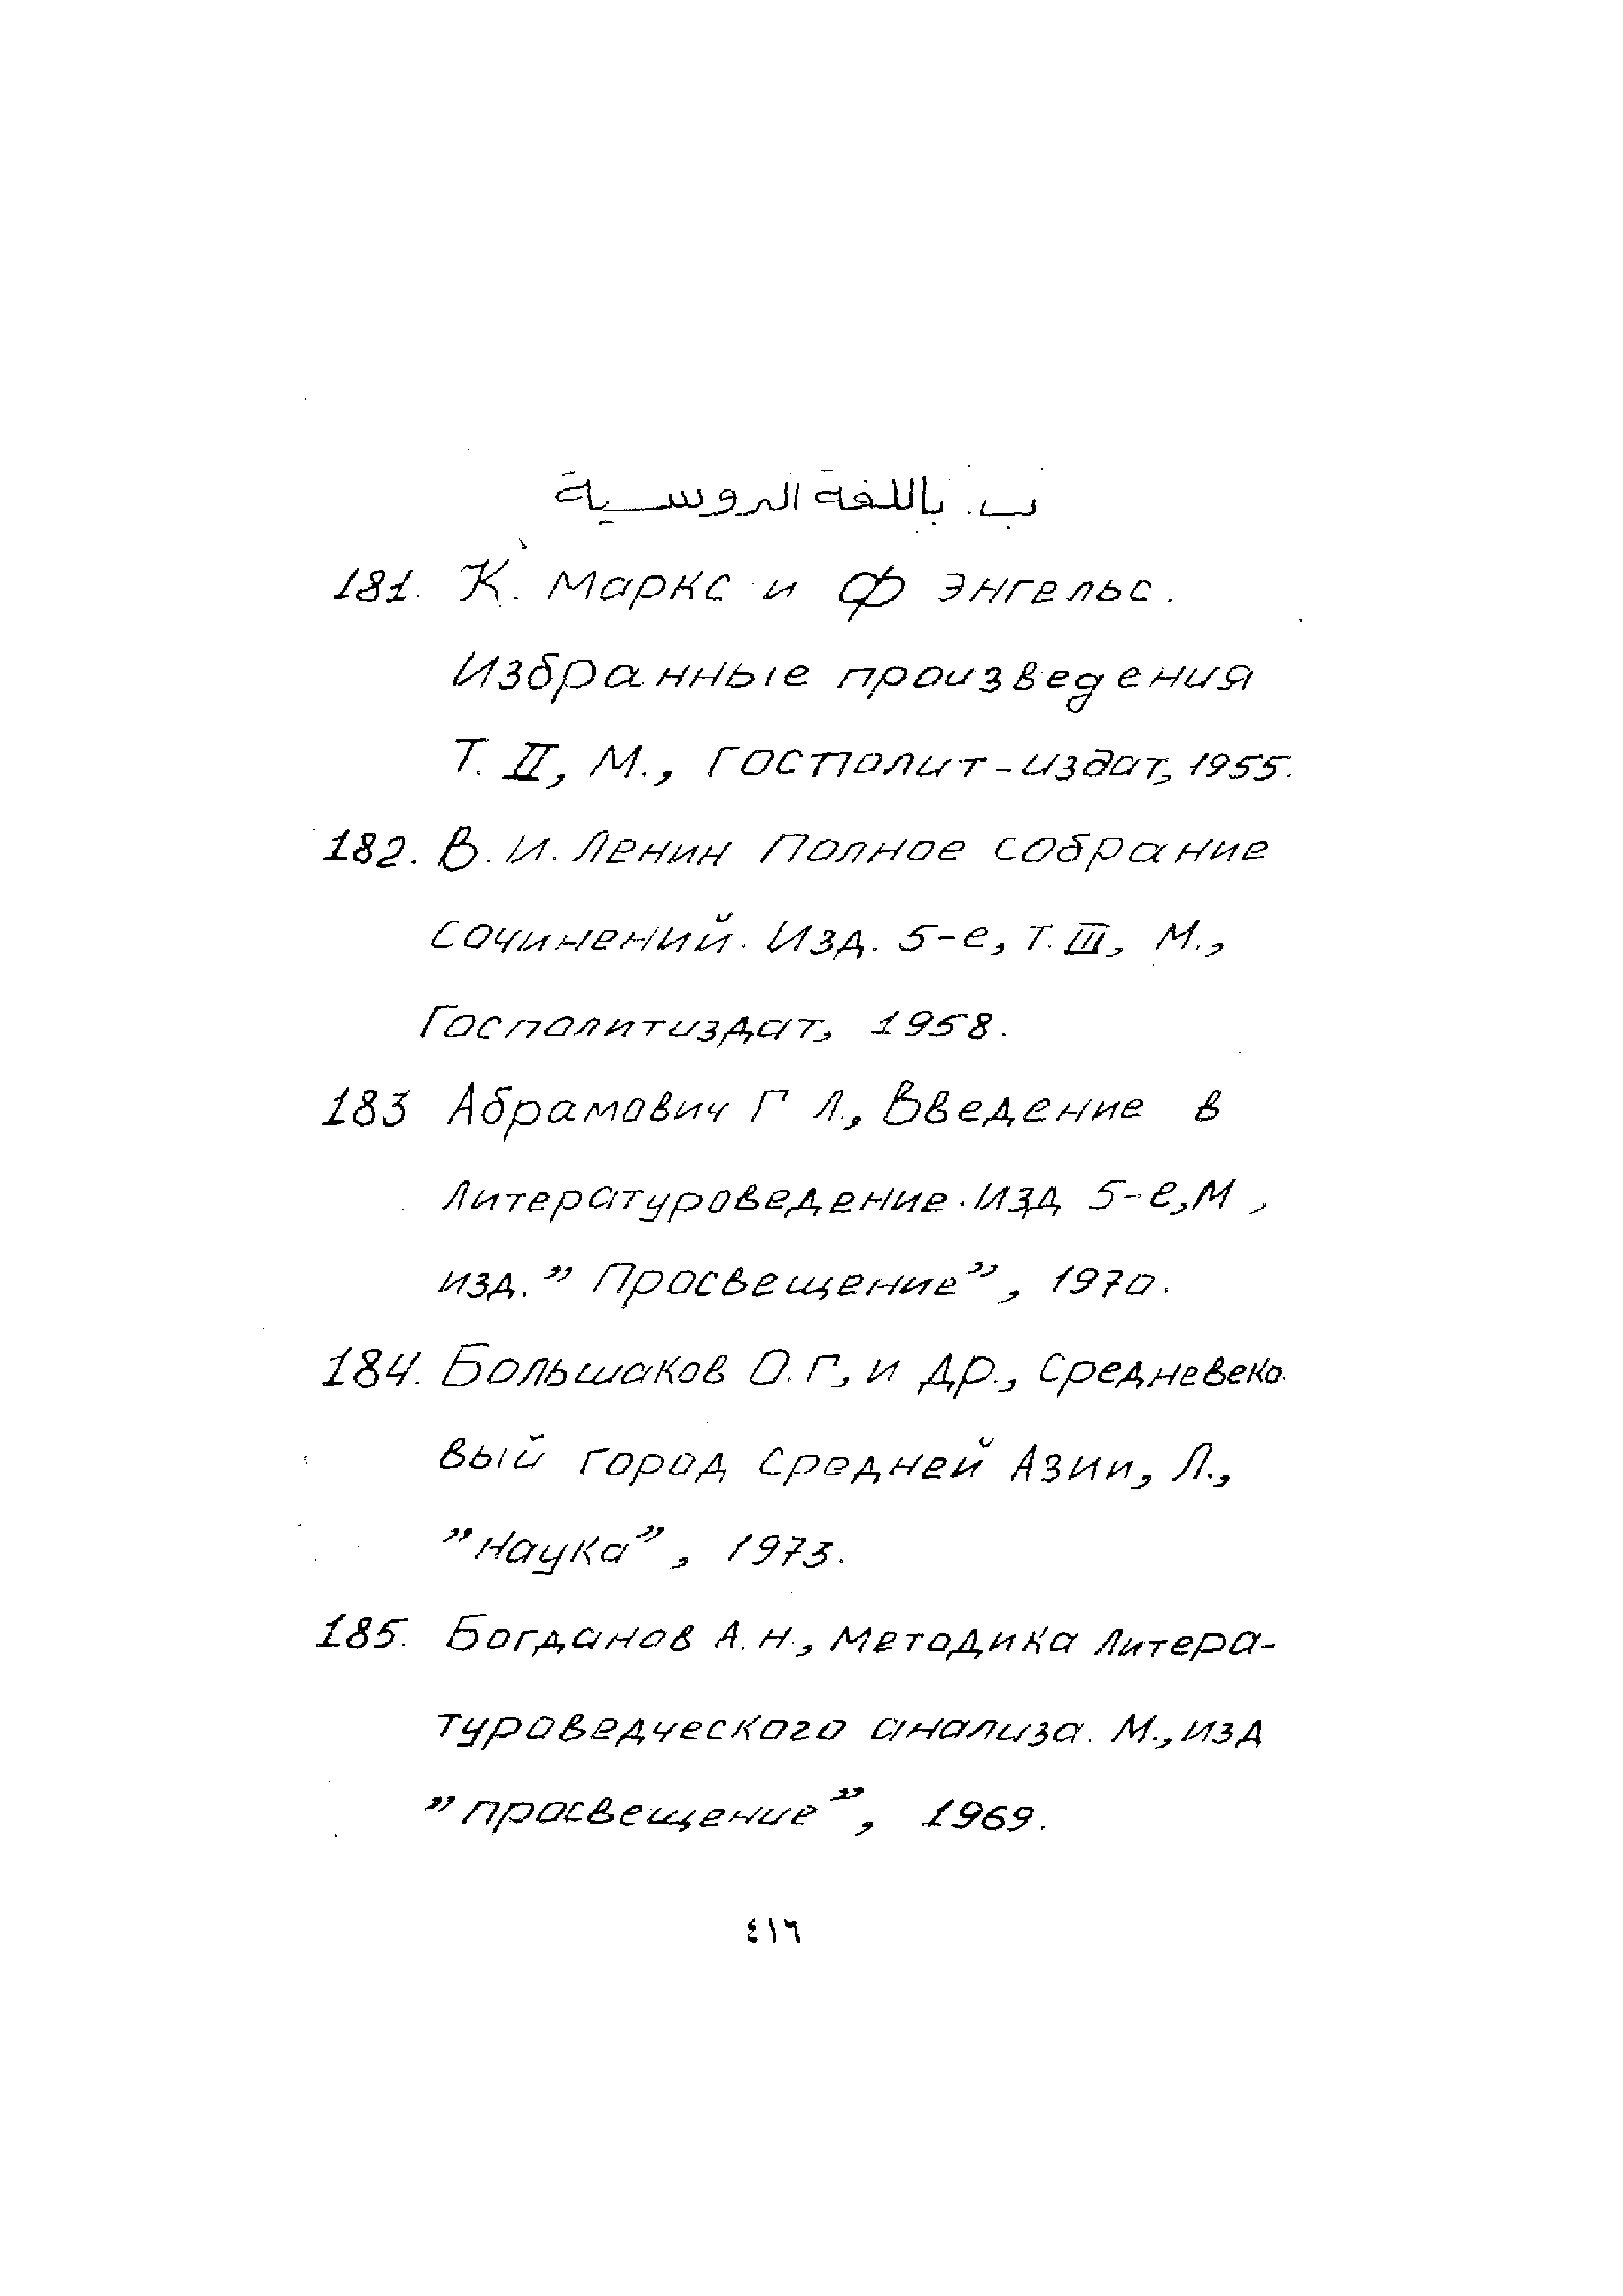 ب. باللغة الروسية
181. К. Маркс и Ф Энгельс.
Избранные произведения
Т. II, М., Госполит-издат, 1955.
182. В. И. Ленин Полное собрание
сочинений. Изд. 5-е, т. III, М.,
Госполитиздат, 1958.
183 Абрамович Г Л., Введение в
литературоведение. Изд 5-е, М ,
изд. ” Просвещение”, 1970.
184. Большаков О. Г, и др., Средневеко.
вый город средней Азии, Л.,
”Наука”, 1973.
185. Богданов А. Н., Методика Литера-
туроведческого анализа. М., изд
”просвещение”, 1969.
٤١٦